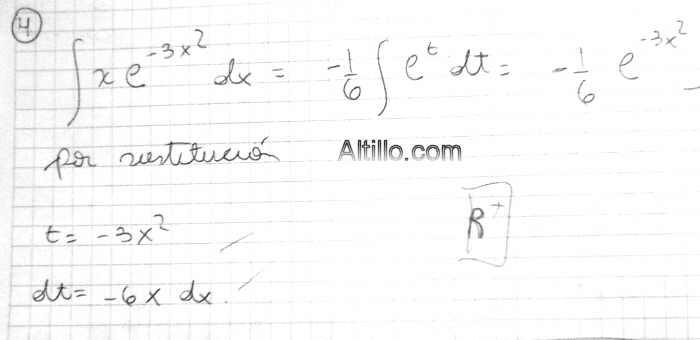 4
∫ x e^{-3x^2} dx = -1/6 ∫ e^t dt = -1/6 e^{-3x^2}
por sustitución
Altillo.com
t = -3x^2
R+
dt = -6x dx.